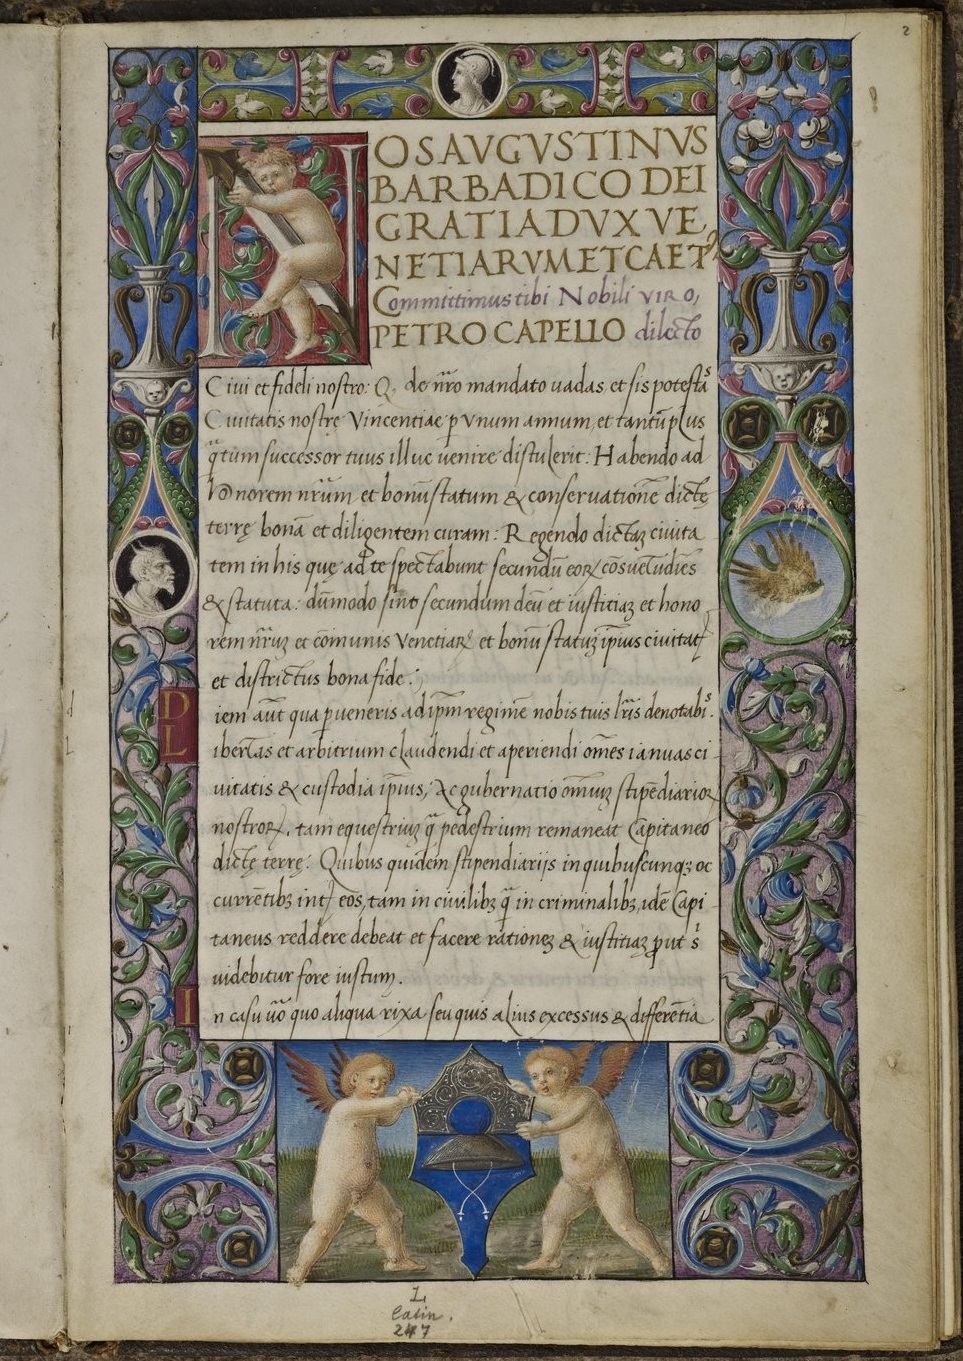 2
NOS AVGVSTINVS
BARBADICO DEI
GRATIA DVX VE
NETIARVM ET CAETꝰ
Committimus tibi Nobili viro,
PETRO CAPELLO dilecto
Civi et fideli nostro: Q de nr̄o mandato uadas et sis potestaˢ
Ciuitatis nostrę Vincentiae p̱ Vnum annum, et tantū plus
q̄tum successor tuus illuc uenire distulerit: Habendo ad
honorem nr̄um et bonū statum & conseruationē dictę
terrę bonā et diligentem curam: Regendo dictaȝ ciuita
tem in his quę ad te spectabunt secundū eoꝝ cōsuetudīes
& statuta: dūmodo sint secundum deū et iustitiaȝ et hono
rem nr̄uȝ et cōmunis Venetiaꝝ et bonū statuȝ ip̄ius ciuitatꝭ
et districtus bona fide:
D iem aūt qua p̱ueneris ad ip̄m regimē nobis tuis lr̄is denotabiˢ.
L ibertas et arbitrium claudendi et aperiendi om̄es ianuas ci
uitatis & custodia ip̄ius, Ac gubernatio om̄iuȝ stipēdiarioꝝ
nostroꝝ, tam equestriuȝ q̄ pedestrium remaneat Capitaneo
dictę terrę: Quibus quidem stipendiarijs in quibuscunqȝ oc
currētibȝ intꝭ eos, tam in ciuilibȝ q̄ in criminalibȝ, idē Capi
taneus reddere debeat et facere rationeȝ & iustitiaȝ ꝓut sⁱ
uidebitur fore iustum.
I n casu uō quo aliqua rixa seu quis alius excessus & differētia
L.
Latin.
247